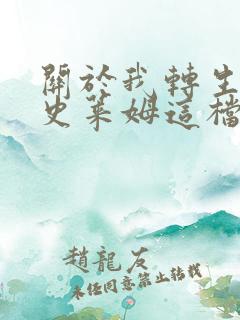 關於我轉生
史萊姆這檔
趙龍友
未任同意禁止轉載